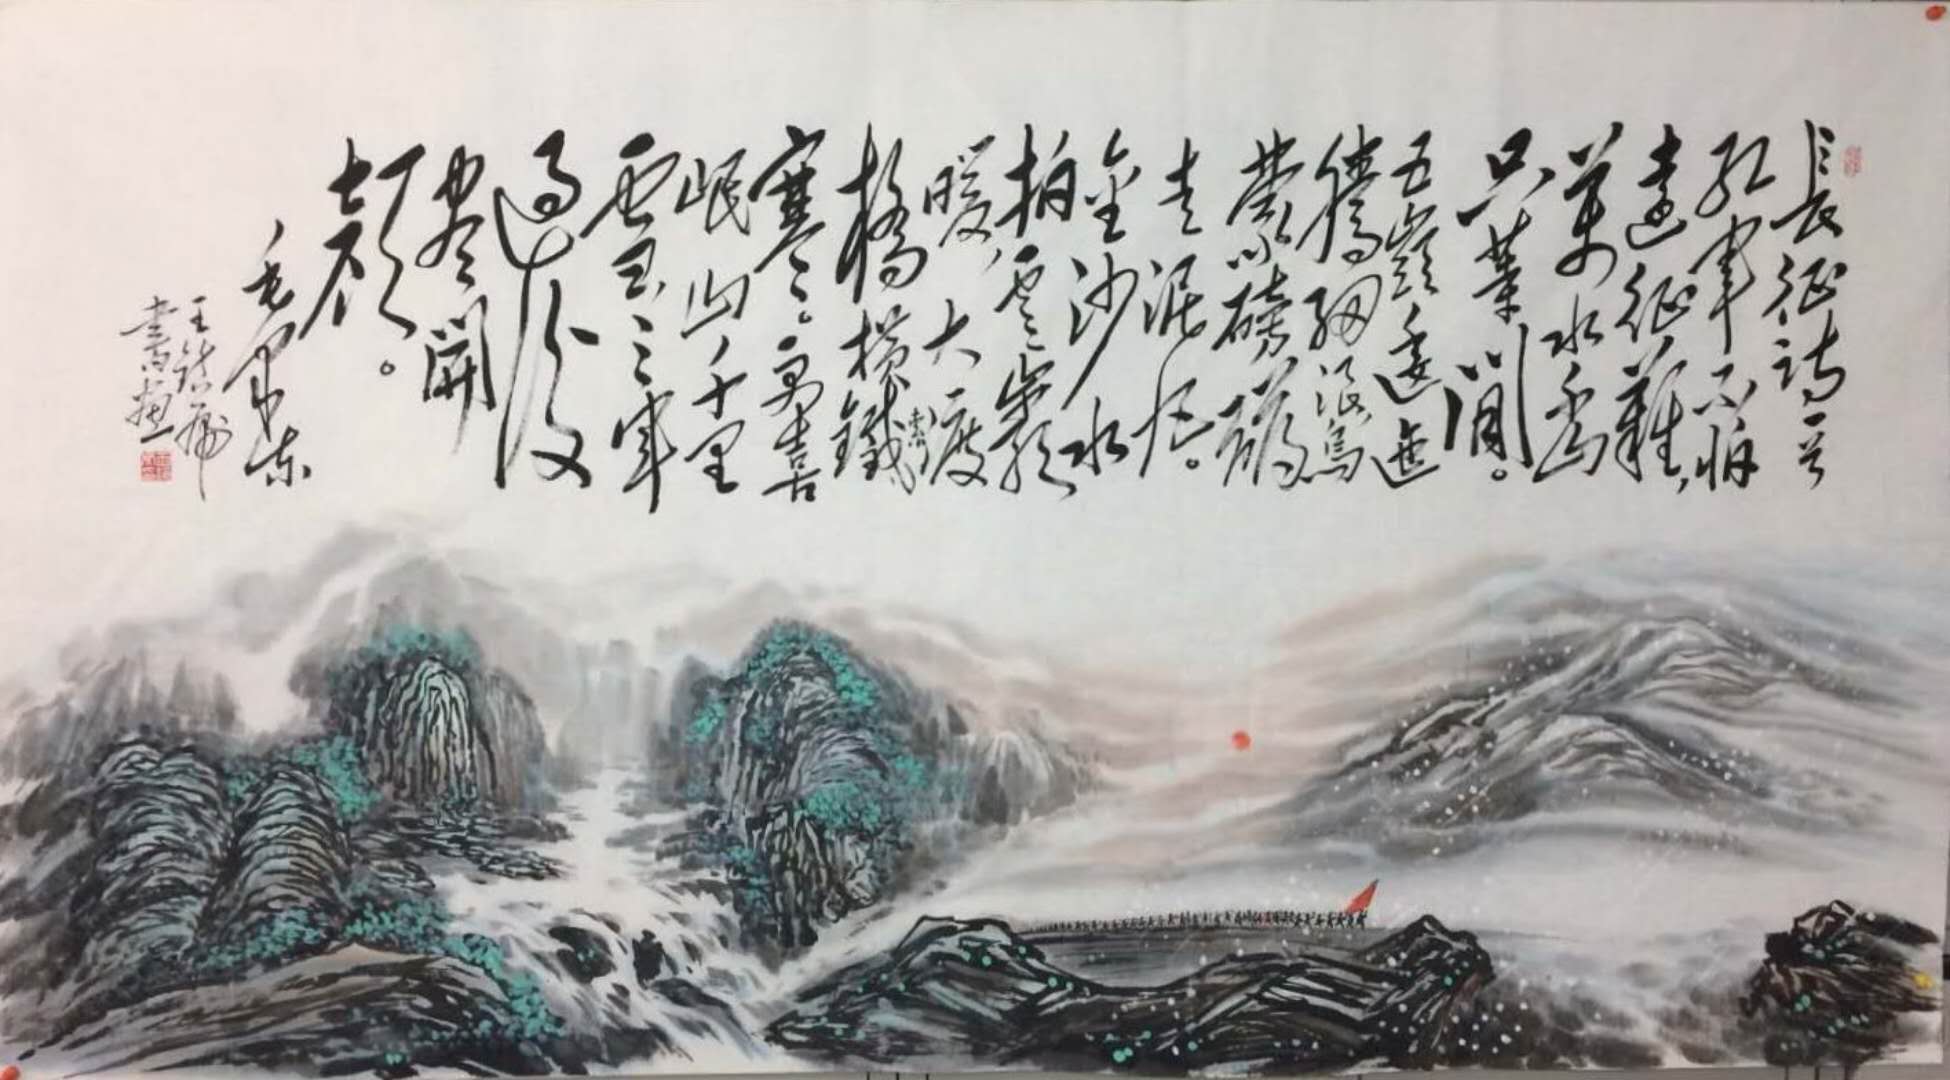 長征詩一首
红軍不怕
遠征難，
萬水千山
只等閒。
五嶺逶迤
騰細浪烏
蒙磅礴
走泥丸。
金沙水
拍雲崖
暖，大渡
橋横鐵索
寒。更喜
岷山千里
雪三军
過後
盡開
顏。
毛澤东
王
書畫